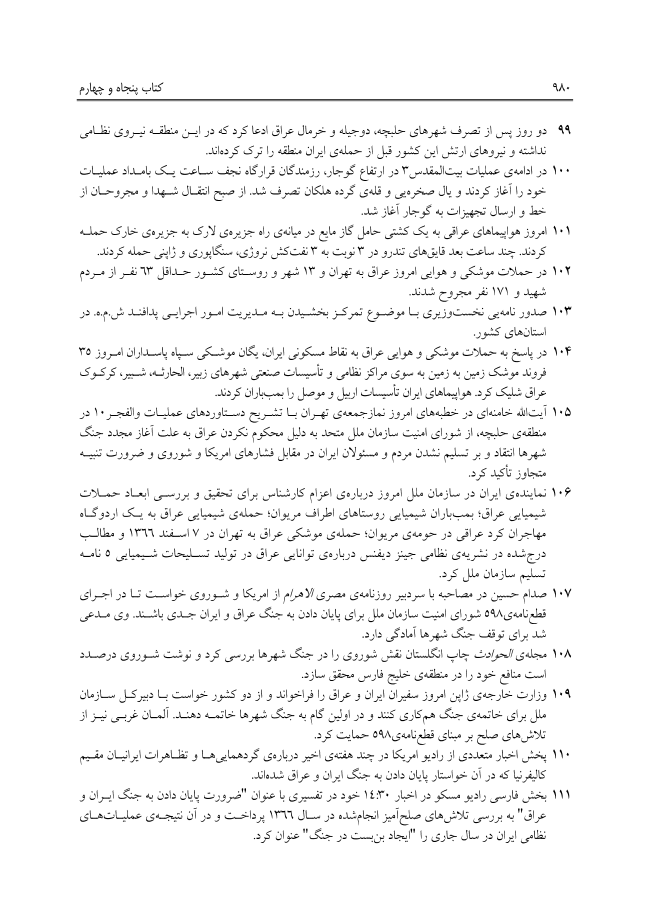 ۹۸۰ کتاب پنجاه و چهارم
۹۹ دو روز پس از تصرف شهرهای حلبچه، دوجیله و خرمال عراق ادعا کرد که در این منطقه نیروی نظامی
نداشته و نیروهای ارتش این کشور قبل از حمله‌ی ایران منطقه را ترک کرده‌اند.
۱۰۰ در ادامه‌ی عملیات بیت‌المقدس۳ در ارتفاع گوجار، رزمندگان قرارگاه نجف ساعت یک بامداد عملیات
خود را آغاز کردند و یال صخره‌یی و قله‌ی گرده هلکان تصرف شد. از صبح انتقال شهدا و مجروحان از
خط و ارسال تجهیزات به گوجار آغاز شد.
۱۰۱ امروز هواپیماهای عراقی به یک کشتی حامل گاز مایع در میانه‌ی راه جزیره‌ی لارک به جزیره‌ی خارک حمله
کردند. چند ساعت بعد قایق‌های تندرو در ۳ نوبت به ۳ نفت‌کش نروژی، سنگاپوری و ژاپنی حمله کردند.
۱۰۲ در حملات موشکی و هوایی امروز عراق به تهران و ۱۳ شهر و روستای کشور حداقل ۶۳ نفر از مردم
شهید و ۱۷۱ نفر مجروح شدند.
۱۰۳ صدور نامه‌یی نخست‌وزیری با موضوع تمرکز بخشیدن به مدیریت امور اجرایی پدافند ش.م.ه. در
استان‌های کشور.
۱۰۴ در پاسخ به حملات موشکی و هوایی عراق به نقاط مسکونی ایران، یگان موشکی سپاه پاسداران امروز ۳۵
فروند موشک زمین به زمین به سوی مراکز نظامی و تأسیسات صنعتی شهرهای زبیر، الحارثه، شبیر، کرکوک
عراق شلیک کرد. هواپیماهای ایران تأسیسات اربیل و موصل را بمب‌باران کردند.
۱۰۵ آیت‌الله خامنه‌ای در خطبه‌های امروز نمازجمعه‌ی تهران با تشریح دستاوردهای عملیات والفجر۱۰ در
منطقه‌ی حلبچه، از شورای امنیت سازمان ملل متحد به دلیل محکوم نکردن عراق به علت آغاز مجدد جنگ
شهرها انتقاد و بر تسلیم نشدن مردم و مسئولان ایران در مقابل فشارهای امریکا و شوروی و ضرورت تنبیه
متجاوز تأکید کرد.
۱۰۶ نماینده‌ی ایران در سازمان ملل امروز درباره‌ی اعزام کارشناس برای تحقیق و بررسی ابعاد حملات
شیمیایی عراق؛ بمب‌باران شیمیایی روستاهای اطراف مریوان؛ حمله‌ی شیمیایی عراق به یک اردوگاه
مهاجران کرد عراقی در حومه‌ی مریوان؛ حمله‌ی موشکی عراق به تهران در ۷ اسفند ۱۳۶۶ و مطالب
درج‌شده در نشریه‌ی نظامی جینز دیفنس درباره‌ی توانایی عراق در تولید تسلیحات شیمیایی ۵ نامه
تسلیم سازمان ملل کرد.
۱۰۷ صدام حسین در مصاحبه با سردبیر روزنامه‌ی مصری الاهرام از امریکا و شوروی خواست تا در اجرای
قطع‌نامه‌ی۵۹۸ شورای امنیت سازمان ملل برای پایان دادن به جنگ عراق و ایران جدی باشند. وی مدعی
شد برای توقف جنگ شهرها آمادگی دارد.
۱۰۸ مجله‌ی الحوادث چاپ انگلستان نقش شوروی را در جنگ شهرها بررسی کرد و نوشت شوروی درصدد
است منافع خود را در منطقه‌ی خلیج فارس محقق سازد.
۱۰۹ وزارت خارجه‌ی ژاپن امروز سفیران ایران و عراق را فراخواند و از دو کشور خواست با دبیرکل سازمان
ملل برای خاتمه‌ی جنگ هم‌کاری کنند و در اولین گام به جنگ شهرها خاتمه دهند. آلمان غربی نیز از
تلاش‌های صلح بر مبنای قطع‌نامه‌ی۵۹۸ حمایت کرد.
۱۱۰ پخش اخبار متعددی از رادیو امریکا در چند هفته‌ی اخیر درباره‌ی گردهمایی‌ها و تظاهرات ایرانیان مقیم
کالیفرنیا که در آن خواستار پایان دادن به جنگ ایران و عراق شده‌اند.
۱۱۱ بخش فارسی رادیو مسکو در اخبار ۱۴:۳۰ خود در تفسیری با عنوان "ضرورت پایان دادن به جنگ ایران و
عراق" به بررسی تلاش‌های صلح‌آمیز انجام‌شده در سال ۱۳۶۶ پرداخت و در آن نتیجه‌ی عملیات‌های
نظامی ایران در سال جاری را "ایجاد بن‌بست در جنگ" عنوان کرد.